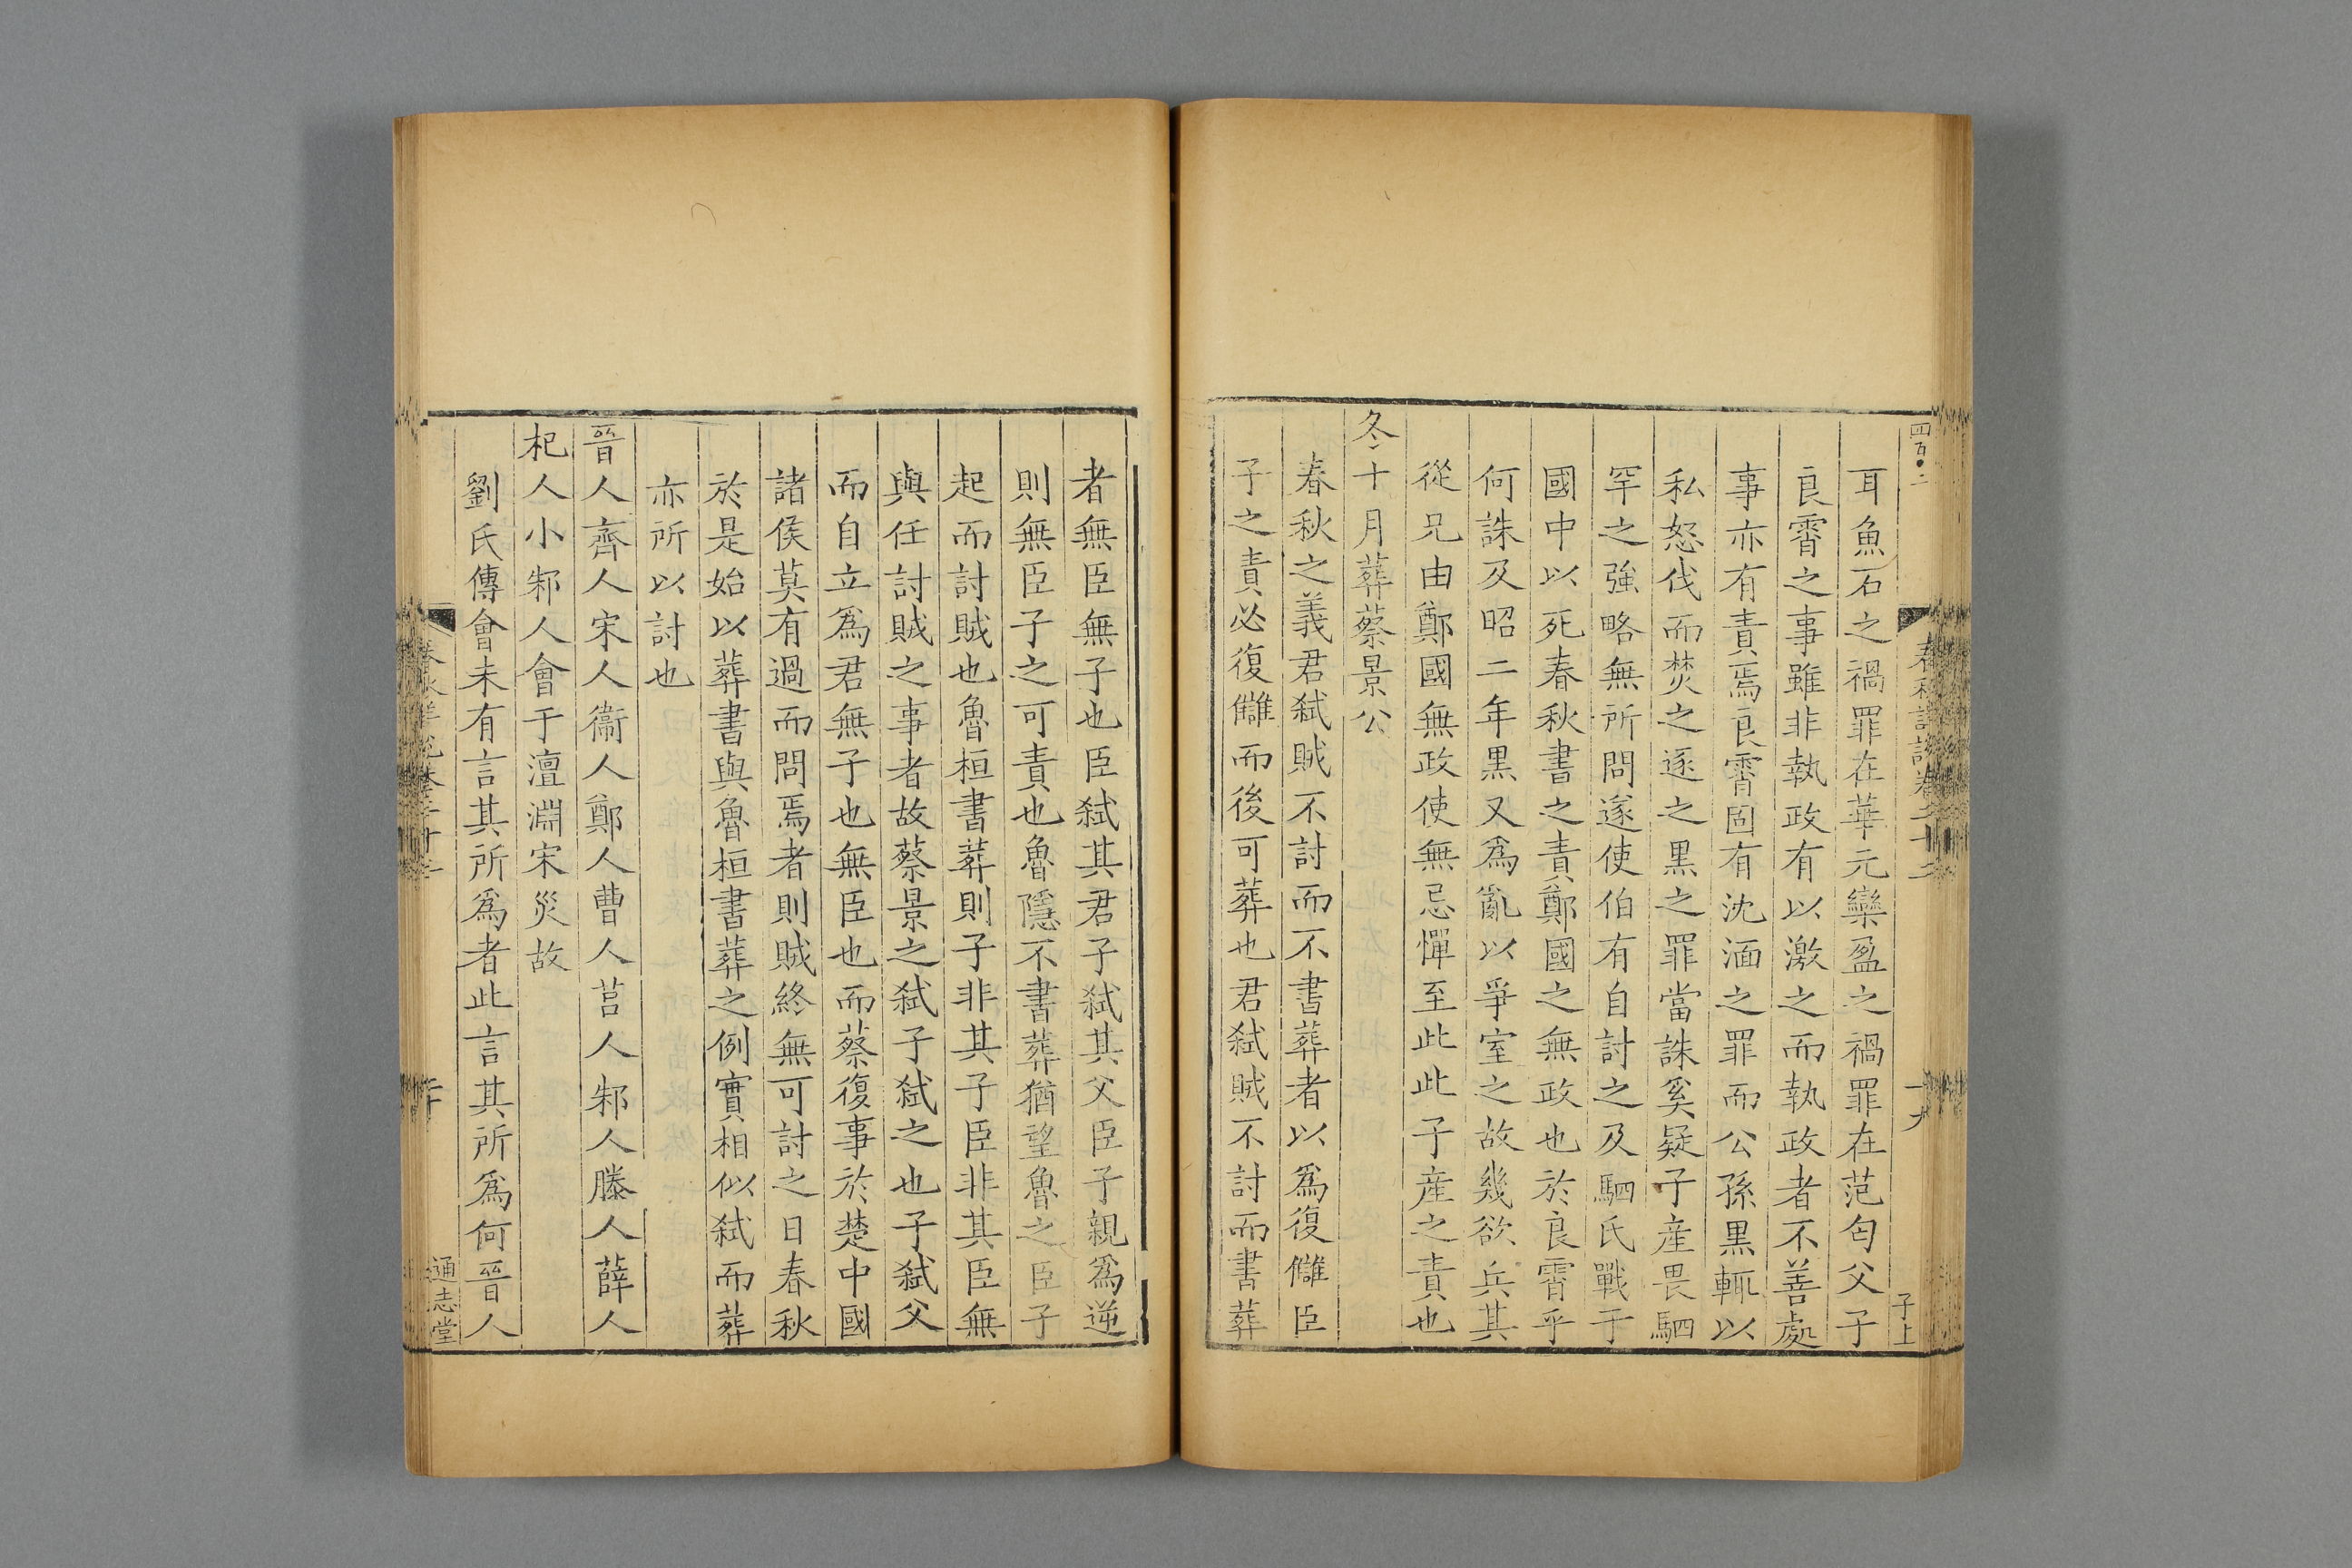 四百〇二
子上
耳魚石之禍罪在華元欒盈之禍罪在范匄父子
良霄之事雖非執政有以激之而執政者不善處
事亦有責焉良霄固有沈湎之罪而公孫黑輒以
私怒伐而焚之逐之黑之罪當誅奚疑子産畏駟
罕之強略無所問遂使伯有自討之及駟氏戰于
國中以死春秋書之責鄭國之無政也於良霄乎
何誅及昭二年黒又爲亂以爭室之故幾欲兵其
從兄由鄭國無政使無忌憚至此此子産之責也
冬十月葬蔡景公
春秋之義君弑賊不討而不書葬者以爲復讎臣
子之責必復讎而後可葬也君弑賊不討而書葬
者無臣無子也臣弑其君子弑其父臣子親爲逆
則無臣子之可責也魯隱不書葬猶望魯之臣子
起而討賊也魯桓書葬則子非其子臣非其臣無
與任討賊之事者故蔡景之弑子弑之也子弑父
而自立爲君無子也無臣也而蔡復事於楚中國
諸侯莫有過而問焉者則賊終無可討之日春秋
於是始以葬書與魯桓書葬之例實相似弑而葬
亦所以討也
晉人齊人宋人衞人鄭人曹人莒人邾人滕人薛人
杞人小邾人會于澶淵宋災故
劉氏傳會未有言其所爲者此言其所爲何晉人
通志堂